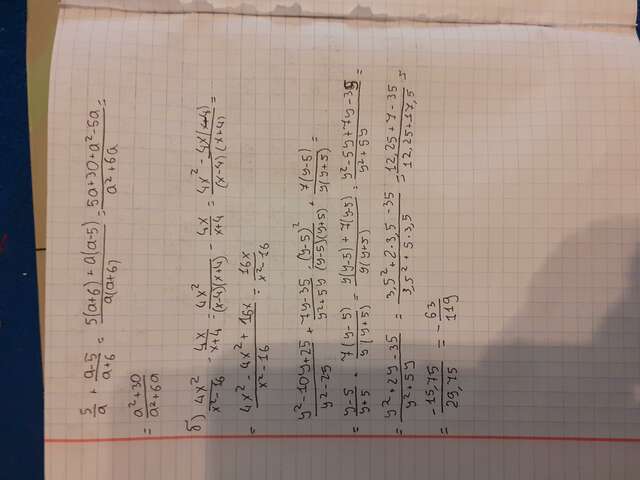 5/a + (a-5)/(a+6) = (5(a+6) + a(a-5))/(a(a+6)) = (5a+30+a²-5a)/(a²+6a) =
= (a²+30)/(a²+6a)
б) 4x²/(x²-16) - 4x/(x+4) = 4x²/((x-4)(x+4)) - 4x/(x+4) = (4x² - 4x(x-4))/((x-4)(x+4)) =
= (4x² - 4x² + 16x)/(x²-16) = 16x/(x²-16)
(y²-10y+25)/(y²-25) + (7y-35)/(y²+5y) = (y-5)²/((y-5)(y+5)) + 7(y-5)/(y(y+5)) =
= (y-5)/(y+5) + 7(y-5)/(y(y+5)) = (y(y-5) + 7(y-5))/(y(y+5)) = (y²-5y+7y-35)/(y²+5y) =
= (y²+2y-35)/(y²+5y) = (3,5²+2·3,5-35)/(3,5²+5·3,5) = (12,25+7-35)/(12,25+17,5) =
= -15,75/29,75 = -63/119